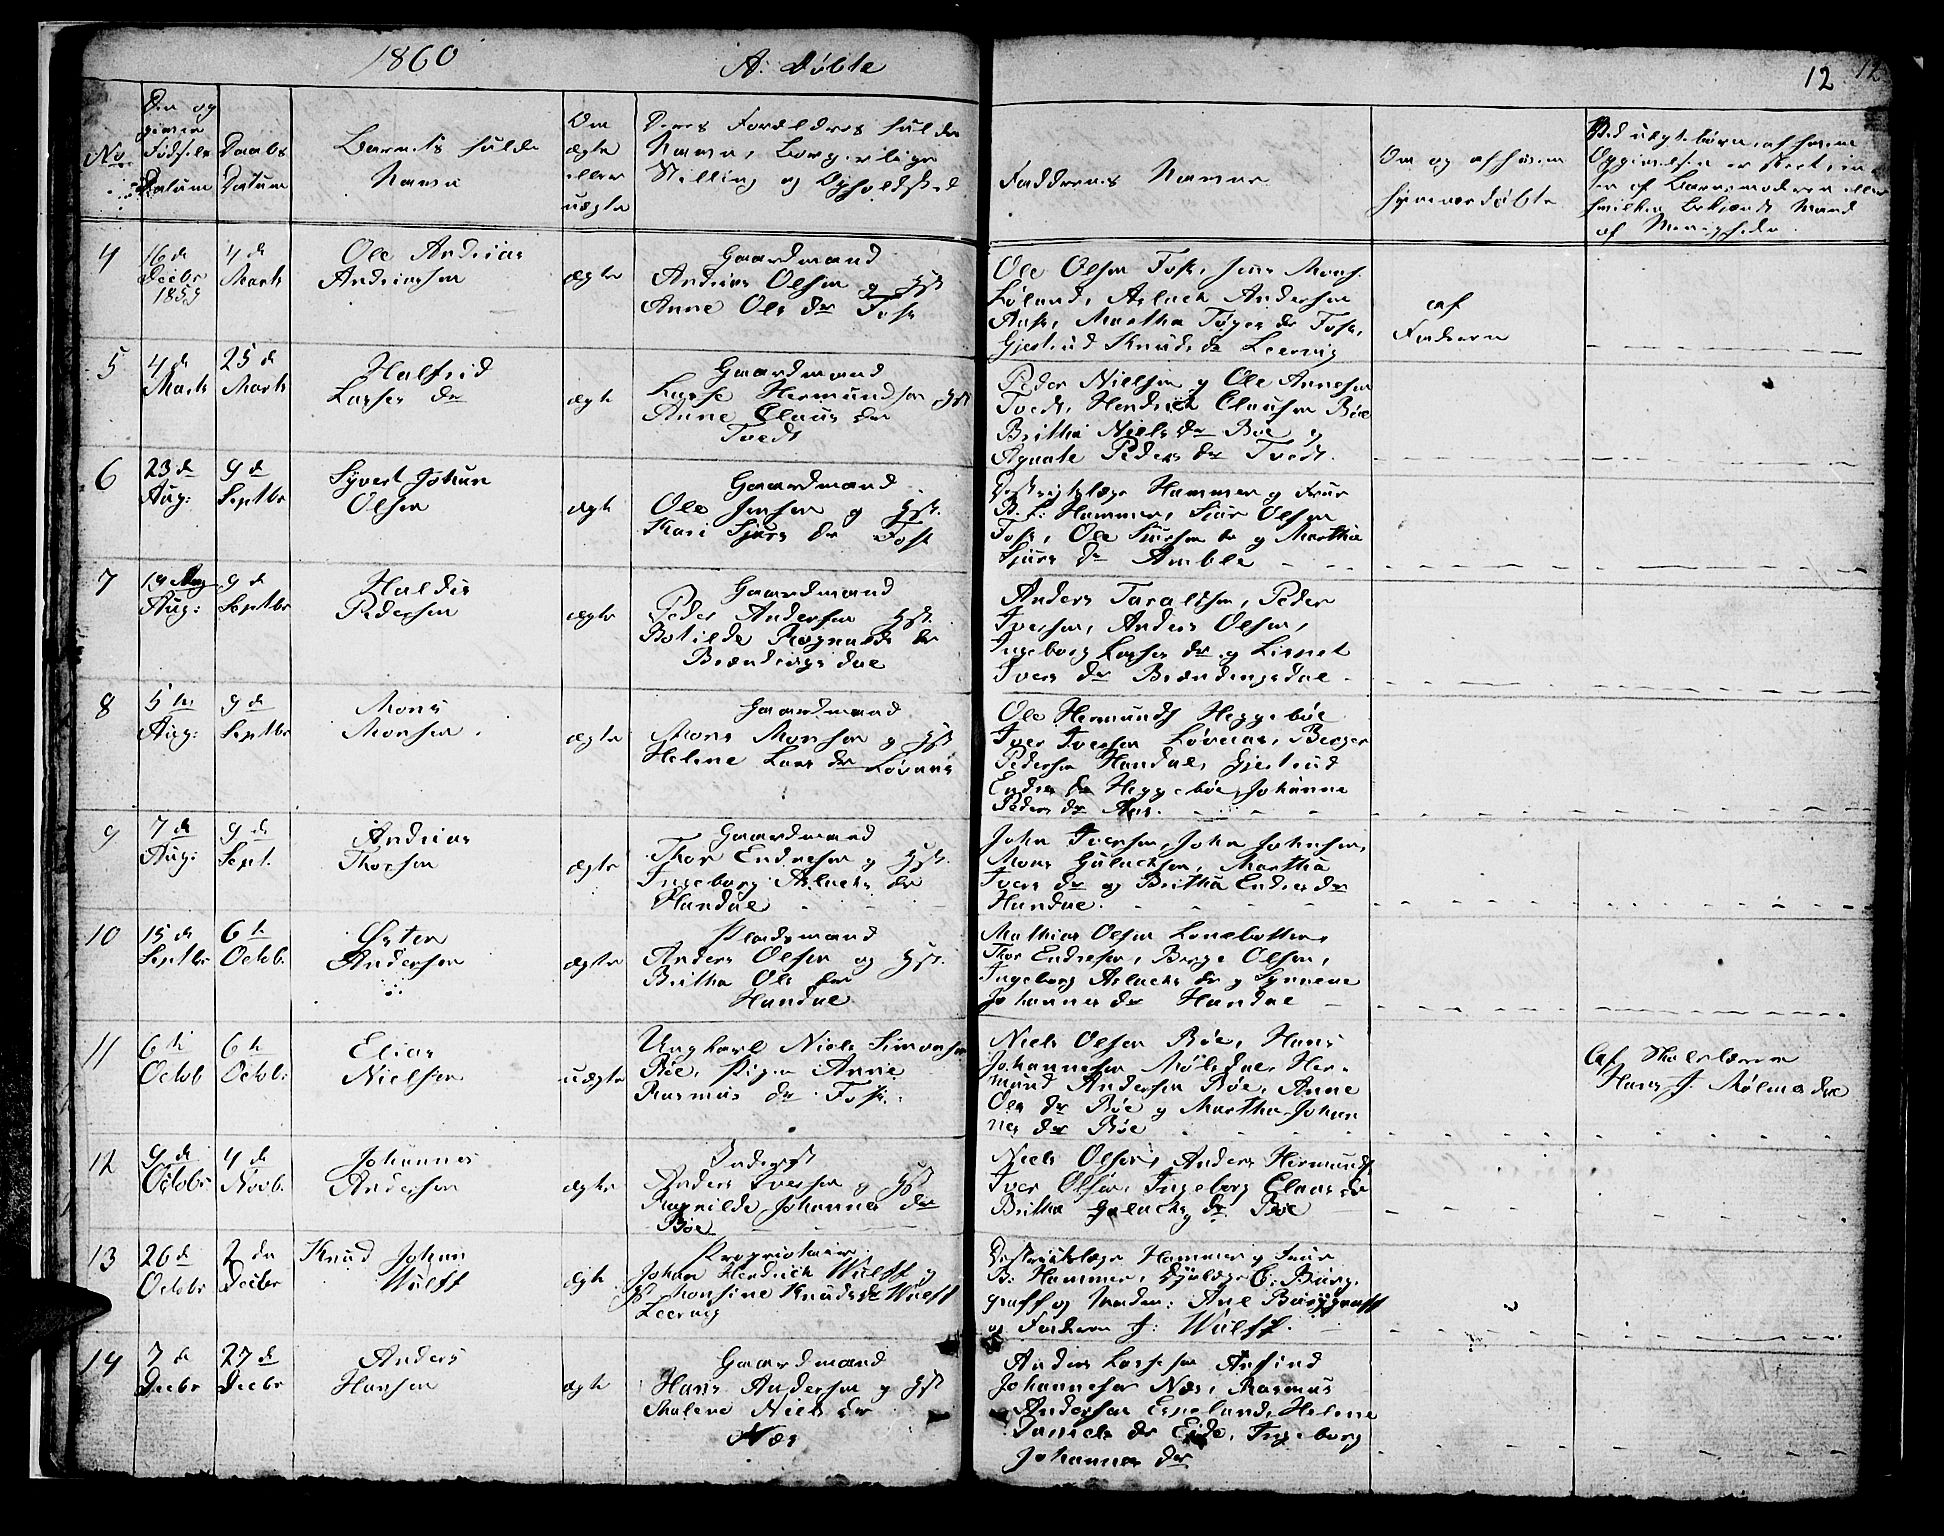 1860
A. Døbte
12
12
No
Den og
givne
Fødsels
Datum
Daabs
Datum
Barnets fulde
Navn
Om
ægte
eller
uægte
Deres Forældres fulde
Navn, Borgerlige
Stilling og Opholdsted
Faddernes Navne
Om og af hvem
hjemmedøbte
Ved uægte børn, af hvem
Opgivelsen er skeet, en
ten af Barnemoderen eller
hvilken bekjendt Mand
af Menigheden.
4
16 de
Decbr
1859
4 de
Marts
Ole Andreas
Andreassen
ægte
Gaardmand
Andreas Olsen og Hst
Anne Ols dr Fosse
Ole Olsen Foss, Jens Mons.
Løland, Aslack Andersen
Aase, Martha Tøger dr Foss,
Gjertrud Knuds dr Leervig
af
Faderen
5
4 de
Marts
25 de
Marts
Halfrid
Lasses dr
ægte
Gaardmand
Lasse Hermundsen Hst
Anne Claus dr
Tvedt
Peder Nielsen og Ole Annesen
Tvedt, Hendrick Clausen Bøe
Britha Niels dr Bøe og
Agnate Peders dr Tvedt.
6
23 de
Aug:
9 de
Septbr
Syvert Johan
Olsen
ægte
Gaardmand
Ole Jensen og Hst.
Kari Sjurs dr Foss
Destriktslæge Hammer og Frue
B. L. Hammer, Sjur Olsen
Foss, Ole og Martha
Sjurs dr Amble
7
19 Aug
Aug:
9 de
Septbr
Haldis
Pedersen
ægte
Gaardmand
Peder Andersen Hst.
Botilde Ragnalds dr
Brændingsdal
Anders Taraldsen, Peder
Iversen, Anders Olsen,
Ingeborg Lasses dr og Lisnet
Ivers dr Brændingsdal
8
5 te
Aug:
9 de
Septbr
Mons
Monsen
ægte
Gaardmand
Mons Monsen og Hst
Helene Lars dr Løvaas
Ole Hermunds Heggebøe
Iver Iversen Løvaas, Berger
Pedersen Handal, Gjertrud
Endres dr Heggebøe, Johanne
Peders dr Aas.
9
7 de
Aug:
9 de
Sept.
Andreas
Thorsen
ægte
Gaardmand
Thor Endresen og Hst.
Ingeborg Aslacks dr
Handal
John Iversen, John Johnsen,
Mons Gulacksen, Martha
Ivers dr og Britha Endres dr
Handal.
10
15 de
Septbr
6 te
Octob.
Østen
Andersen
ægte
Pladsmand
Anders Olsen og Hst.
Britha Ols dr
Handal
Mathias Olsen Lonebotten,
Thor Endresen, Berge Olsen,
Ingeborg Aslacks dr og Synneve
Johannes dr Handal
11
6 te
Octob
6 te
Octob:
Elias
Nielsen
uægte
Ungkarl Niels Simonsen
Bøe, Pigen Anne
Rasmus dr Foss.
Niels Olsen Bøe, Hans
Johannesen Mølsdal, Her-
mund Andersen Bøe, Anne
Ols dr Bøe og Martha Johan
nes dr Bøe
af Skolelærer
Hans J. Mølmesdal
12
9 de
Octobr
4 de
Novb.
Johannes
Andersen
ægte
Inderst
Anders Iversen og Hst
Ragnilde Johannes dr
Bøe
Niels Olsen, Anders Hermunds,
Iver Olsen, Ingeborg Claus dr
Britha Gulacks dr Bøe
13
26 de
Octobr
2 den
Decbr
Knud Johan
Wulff
ægte
Proprietair
Johan Hendrich Wulff og
Monsine Knuds dr Wulff
Leervig
Destriktslæge Hammer og Frue
B. Hammer, Hjulæge C. Burg
graff og Madm: Ane Burggraff
og Faderen J: Wulff.
14
7 de
Decbr
27 de
Decbr
Anders
Hansen
ægte
Gaardmand
Hans Andersen og Hst
Malene Niels dr
Næs
Anders Lassesen Arfind
Johannesen Næs, Rasmus
Andersen Espeland, Helene
Daniels dr Eide, Ingeborg
Johannes dr